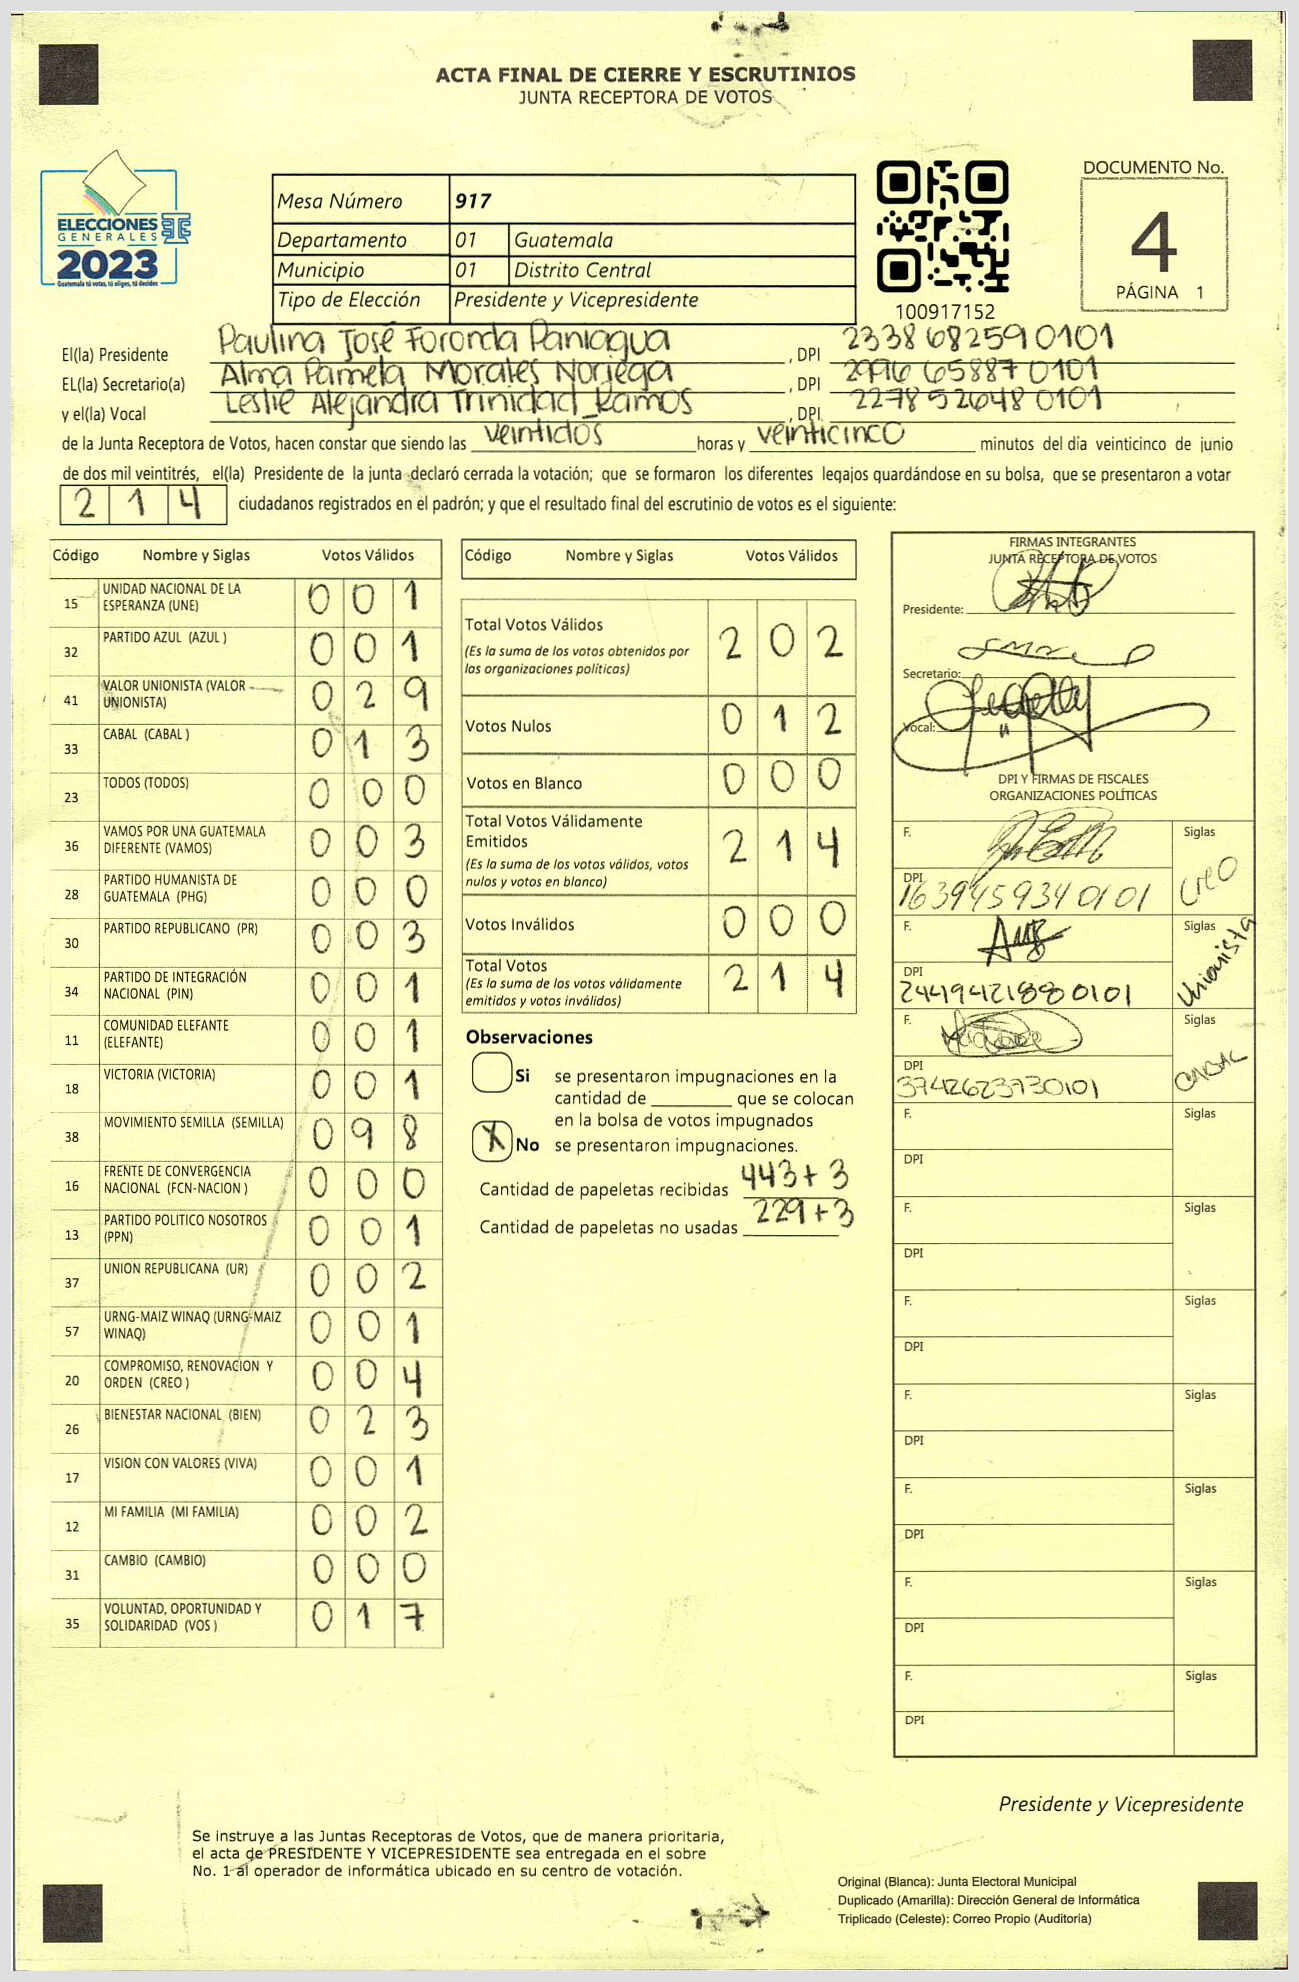 ACTA FINAL DE CIERRE Y ESCRUTINIOS
JUNTA RECEPTORA DE VOTOS
ELECCIONES
GENERALES
2023
Guatemala tú votas, tú eliges, tú decides
Mesa Número 917
Departamento 01 Guatemala
Municipio 01 Distrito Central
Tipo de Elección Presidente y Vicepresidente
100917152
DOCUMENTO No.
4
PÁGINA 1
El(la) Presidente Paulina José Foronda Paniagua , DPI 2338 68259 0101
EL(la) Secretario(a) Alma Pamela Morales Noriega , DPI 2996 65887 0101
y el(la) Vocal Leslie Alejandra Trinidad Ramos , DPI 2278 52648 0101
de la Junta Receptora de Votos, hacen constar que siendo las veintidos horas y veinticinco minutos del día veinticinco de junio
de dos mil veintitrés, el(la) Presidente de la junta declaró cerrada la votación; que se formaron los diferentes legajos guardándose en su bolsa, que se presentaron a votar
2 1 4 ciudadanos registrados en el padrón; y que el resultado final del escrutinio de votos es el siguiente:
Código Nombre y Siglas Votos Válidos
15 UNIDAD NACIONAL DE LA ESPERANZA (UNE) 0 0 1
32 PARTIDO AZUL (AZUL ) 0 0 1
41 VALOR UNIONISTA (VALOR UNIONISTA) 0 2 9
33 CABAL (CABAL ) 0 1 3
23 TODOS (TODOS) 0 0 0
36 VAMOS POR UNA GUATEMALA DIFERENTE (VAMOS) 0 0 3
28 PARTIDO HUMANISTA DE GUATEMALA (PHG) 0 0 0
30 PARTIDO REPUBLICANO (PR) 0 0 3
34 PARTIDO DE INTEGRACIÓN NACIONAL (PIN) 0 0 1
11 COMUNIDAD ELEFANTE (ELEFANTE) 0 0 1
18 VICTORIA (VICTORIA) 0 0 1
38 MOVIMIENTO SEMILLA (SEMILLA) 0 9 8
16 FRENTE DE CONVERGENCIA NACIONAL (FCN-NACION ) 0 0 0
13 PARTIDO POLITICO NOSOTROS (PPN) 0 0 1
37 UNION REPUBLICANA (UR) 0 0 2
57 URNG-MAIZ WINAQ (URNG-MAIZ WINAQ) 0 0 1
20 COMPROMISO, RENOVACION Y ORDEN (CREO ) 0 0 4
26 BIENESTAR NACIONAL (BIEN) 0 2 3
17 VISION CON VALORES (VIVA) 0 0 1
12 MI FAMILIA (MI FAMILIA) 0 0 2
31 CAMBIO (CAMBIO) 0 0 0
35 VOLUNTAD, OPORTUNIDAD Y SOLIDARIDAD (VOS ) 0 1 7
Código Nombre y Siglas Votos Válidos
Total Votos Válidos 2 0 2
(Es la suma de los votos obtenidos por
las organizaciones políticas)
Votos Nulos 0 1 2
Votos en Blanco 0 0 0
Total Votos Válidamente
Emitidos 2 1 4
(Es la suma de los votos válidos, votos
nulos y votos en blanco)
Votos Inválidos 0 0 0
Total Votos 2 1 4
(Es la suma de los votos válidamente
emitidos y votos inválidos)
Observaciones
Si se presentaron impugnaciones en la
cantidad de ________ que se colocan
en la bolsa de votos impugnados
X No se presentaron impugnaciones.
Cantidad de papeletas recibidas 443+3
Cantidad de papeletas no usadas 229+3
FIRMAS INTEGRANTES
JUNTA RECEPTORA DE VOTOS
Presidente:
Secretario:
Vocal:
DPI Y FIRMAS DE FISCALES
ORGANIZACIONES POLÍTICAS
F. Siglas
DPI 163945934 0101 CREO
F. Siglas
DPI 244194218 80101 Unionista
F. Siglas
DPI 3742623730101 CABAL
F. Siglas
DPI
F. Siglas
DPI
F. Siglas
DPI
F. Siglas
DPI
F. Siglas
DPI
F. Siglas
DPI
F. Siglas
DPI
Presidente y Vicepresidente
Se instruye a las Juntas Receptoras de Votos, que de manera prioritaria,
el acta de PRESIDENTE Y VICEPRESIDENTE sea entregada en el sobre
No. 1 al operador de informática ubicado en su centro de votación.
Original (Blanca): Junta Electoral Municipal
Duplicado (Amarilla): Dirección General de Informática
Triplicado (Celeste): Correo Propio (Auditoría)